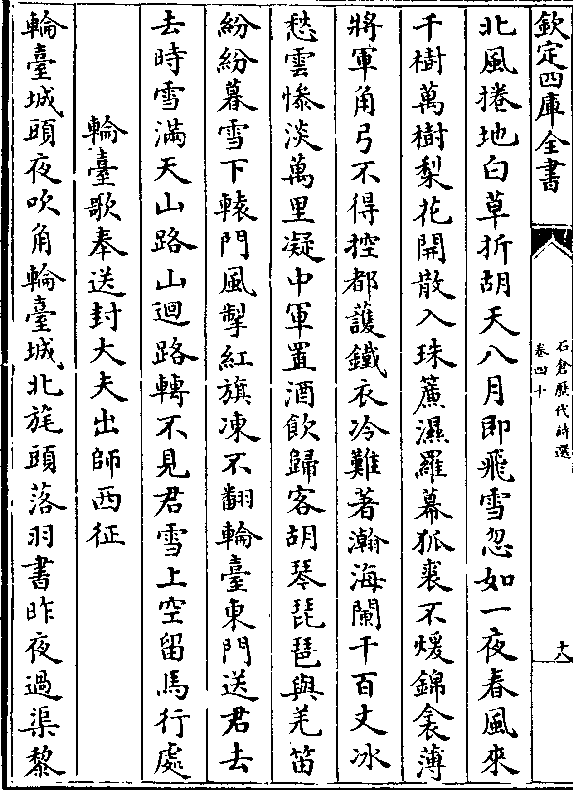 欽定四庫全書
石倉歷代詩選
卷四十
六
北風捲地白草折胡天八月即飛雪忽如一夜春風來
千樹萬樹梨花開散入珠簾濕羅幕狐裘不煖錦衾薄
將軍角弓不得控都護鐵衣冷難著瀚海闌干百丈冰
愁雲慘淡萬里凝中軍置酒飲歸客胡琴琵琶與羌笛
紛紛暮雪下轅門風掣紅旗凍不翻輪臺東門送君去
去時雪滿天山路山迴路轉不見君雪上空留馬行處
輪臺歌奉送封大夫出師西征
輪臺城頭夜吹角輪臺城北旄頭落羽書昨夜過渠黎